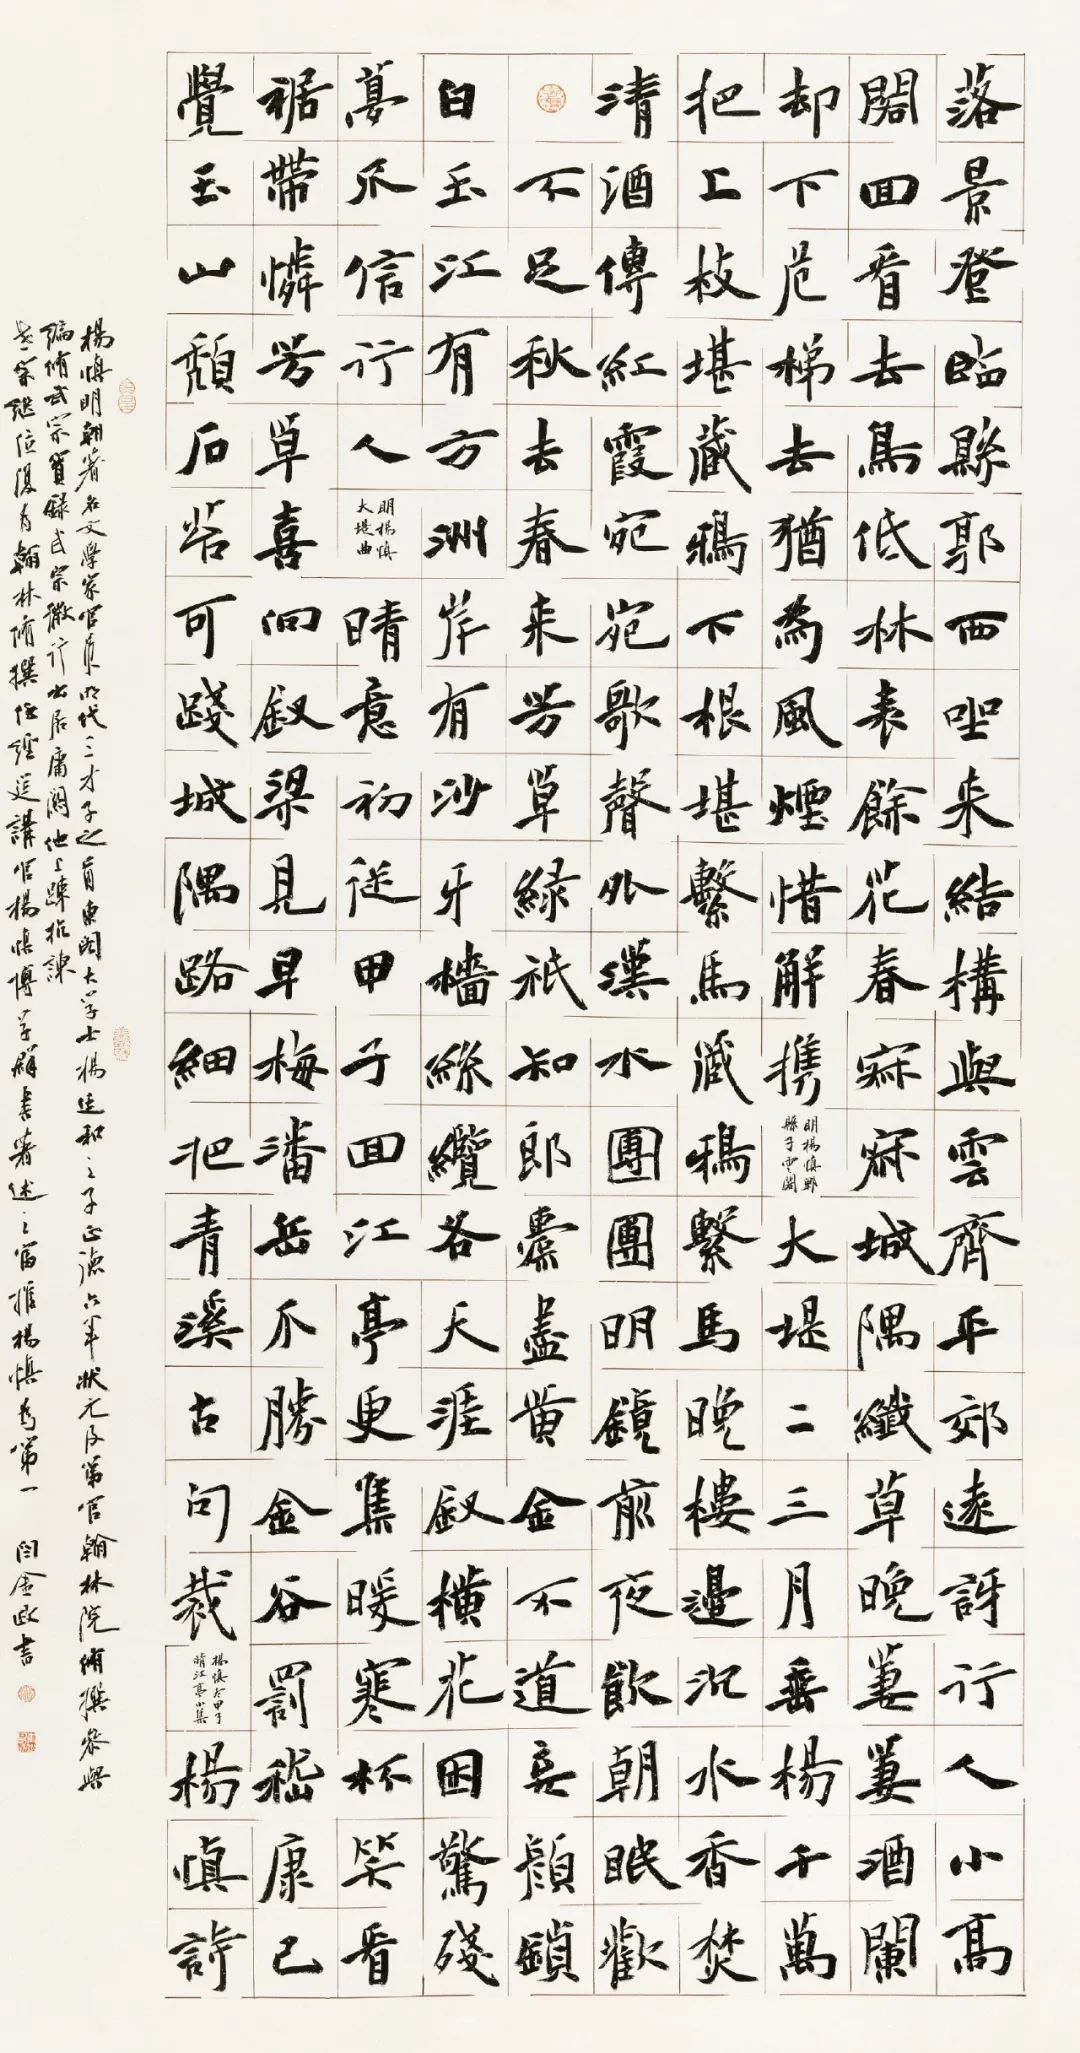 落景登臨縣郭西坐来結構與雲齊平郊遠訝行人小高
閣回看去鳥低林表餘花春寂寂城隅纖草晚萋萋酒闌
却下危梯去猶為風煙惜解携
明楊慎郫
縣子雲閣
大堤二三月垂楊千萬
把上枝堪藏鴉下根堪繫馬藏鴉繫馬晚樓邊沉水香焚
清酒傳紅霞宛宛歌聲外漢水團團明鏡前夜飲朝眠歡
不足秋去春来芳草緑祇知郎橐盡黄金不道妾顏鎖
白玉江有方洲岸有沙牙檣絲纜各天涯釵橫花困驚殘
夢不信行人
明楊慎
大堤曲
晴意初從甲子回江亭更集暖寒杯笑看
裾帶憐芳草喜向釵梁見早梅潘岳不勝金谷罰嵇康已
覺玉山頹石苔可踐城隅路細把青溪古句裁
楊慎冬甲子
晴江亭小集
楊慎詩
楊慎明朝著名文學家官員明代三才子之首東閣大学士楊廷和之子正德六年状元及第官翰林院脩撰参與
編脩武宗實録武宗微行出居庸關他上疏抗諫
世宗继位復为翰林脩撰任經筵講官楊慎博学群書著述之富推楊慎为第一 闫金政書